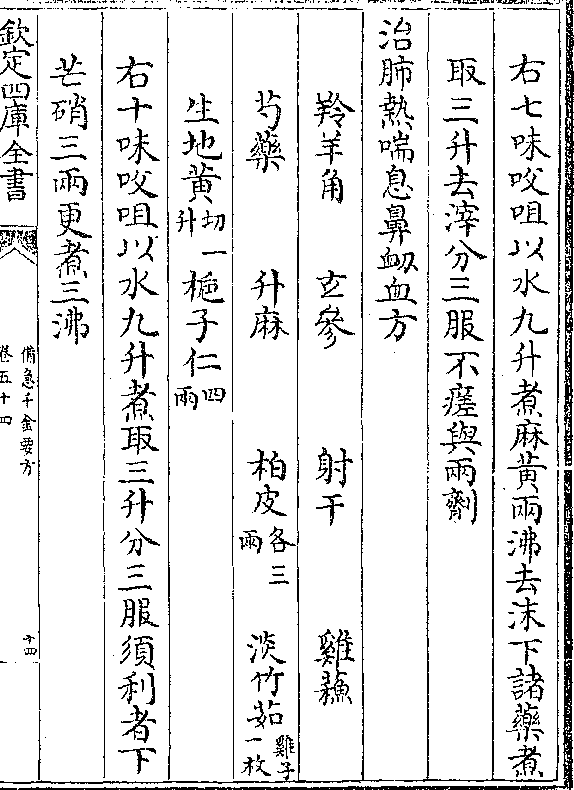 右七味㕮咀以水九升煮麻黄兩沸去沫下諸藥煮
取三升去滓分三服不瘥與兩劑
治肺熱喘息鼻衂血方
羚羊角 玄參 射干 雞蘓
芍藥 升麻 柏皮各三兩 淡竹茹雞子一枚
生地黄切一升 梔子仁四兩
右十味㕮咀以水九升煮取三升分三服須利者下
芒硝三兩更煮三沸
欽定四庫全書
備急千金要方
卷五十四
十四